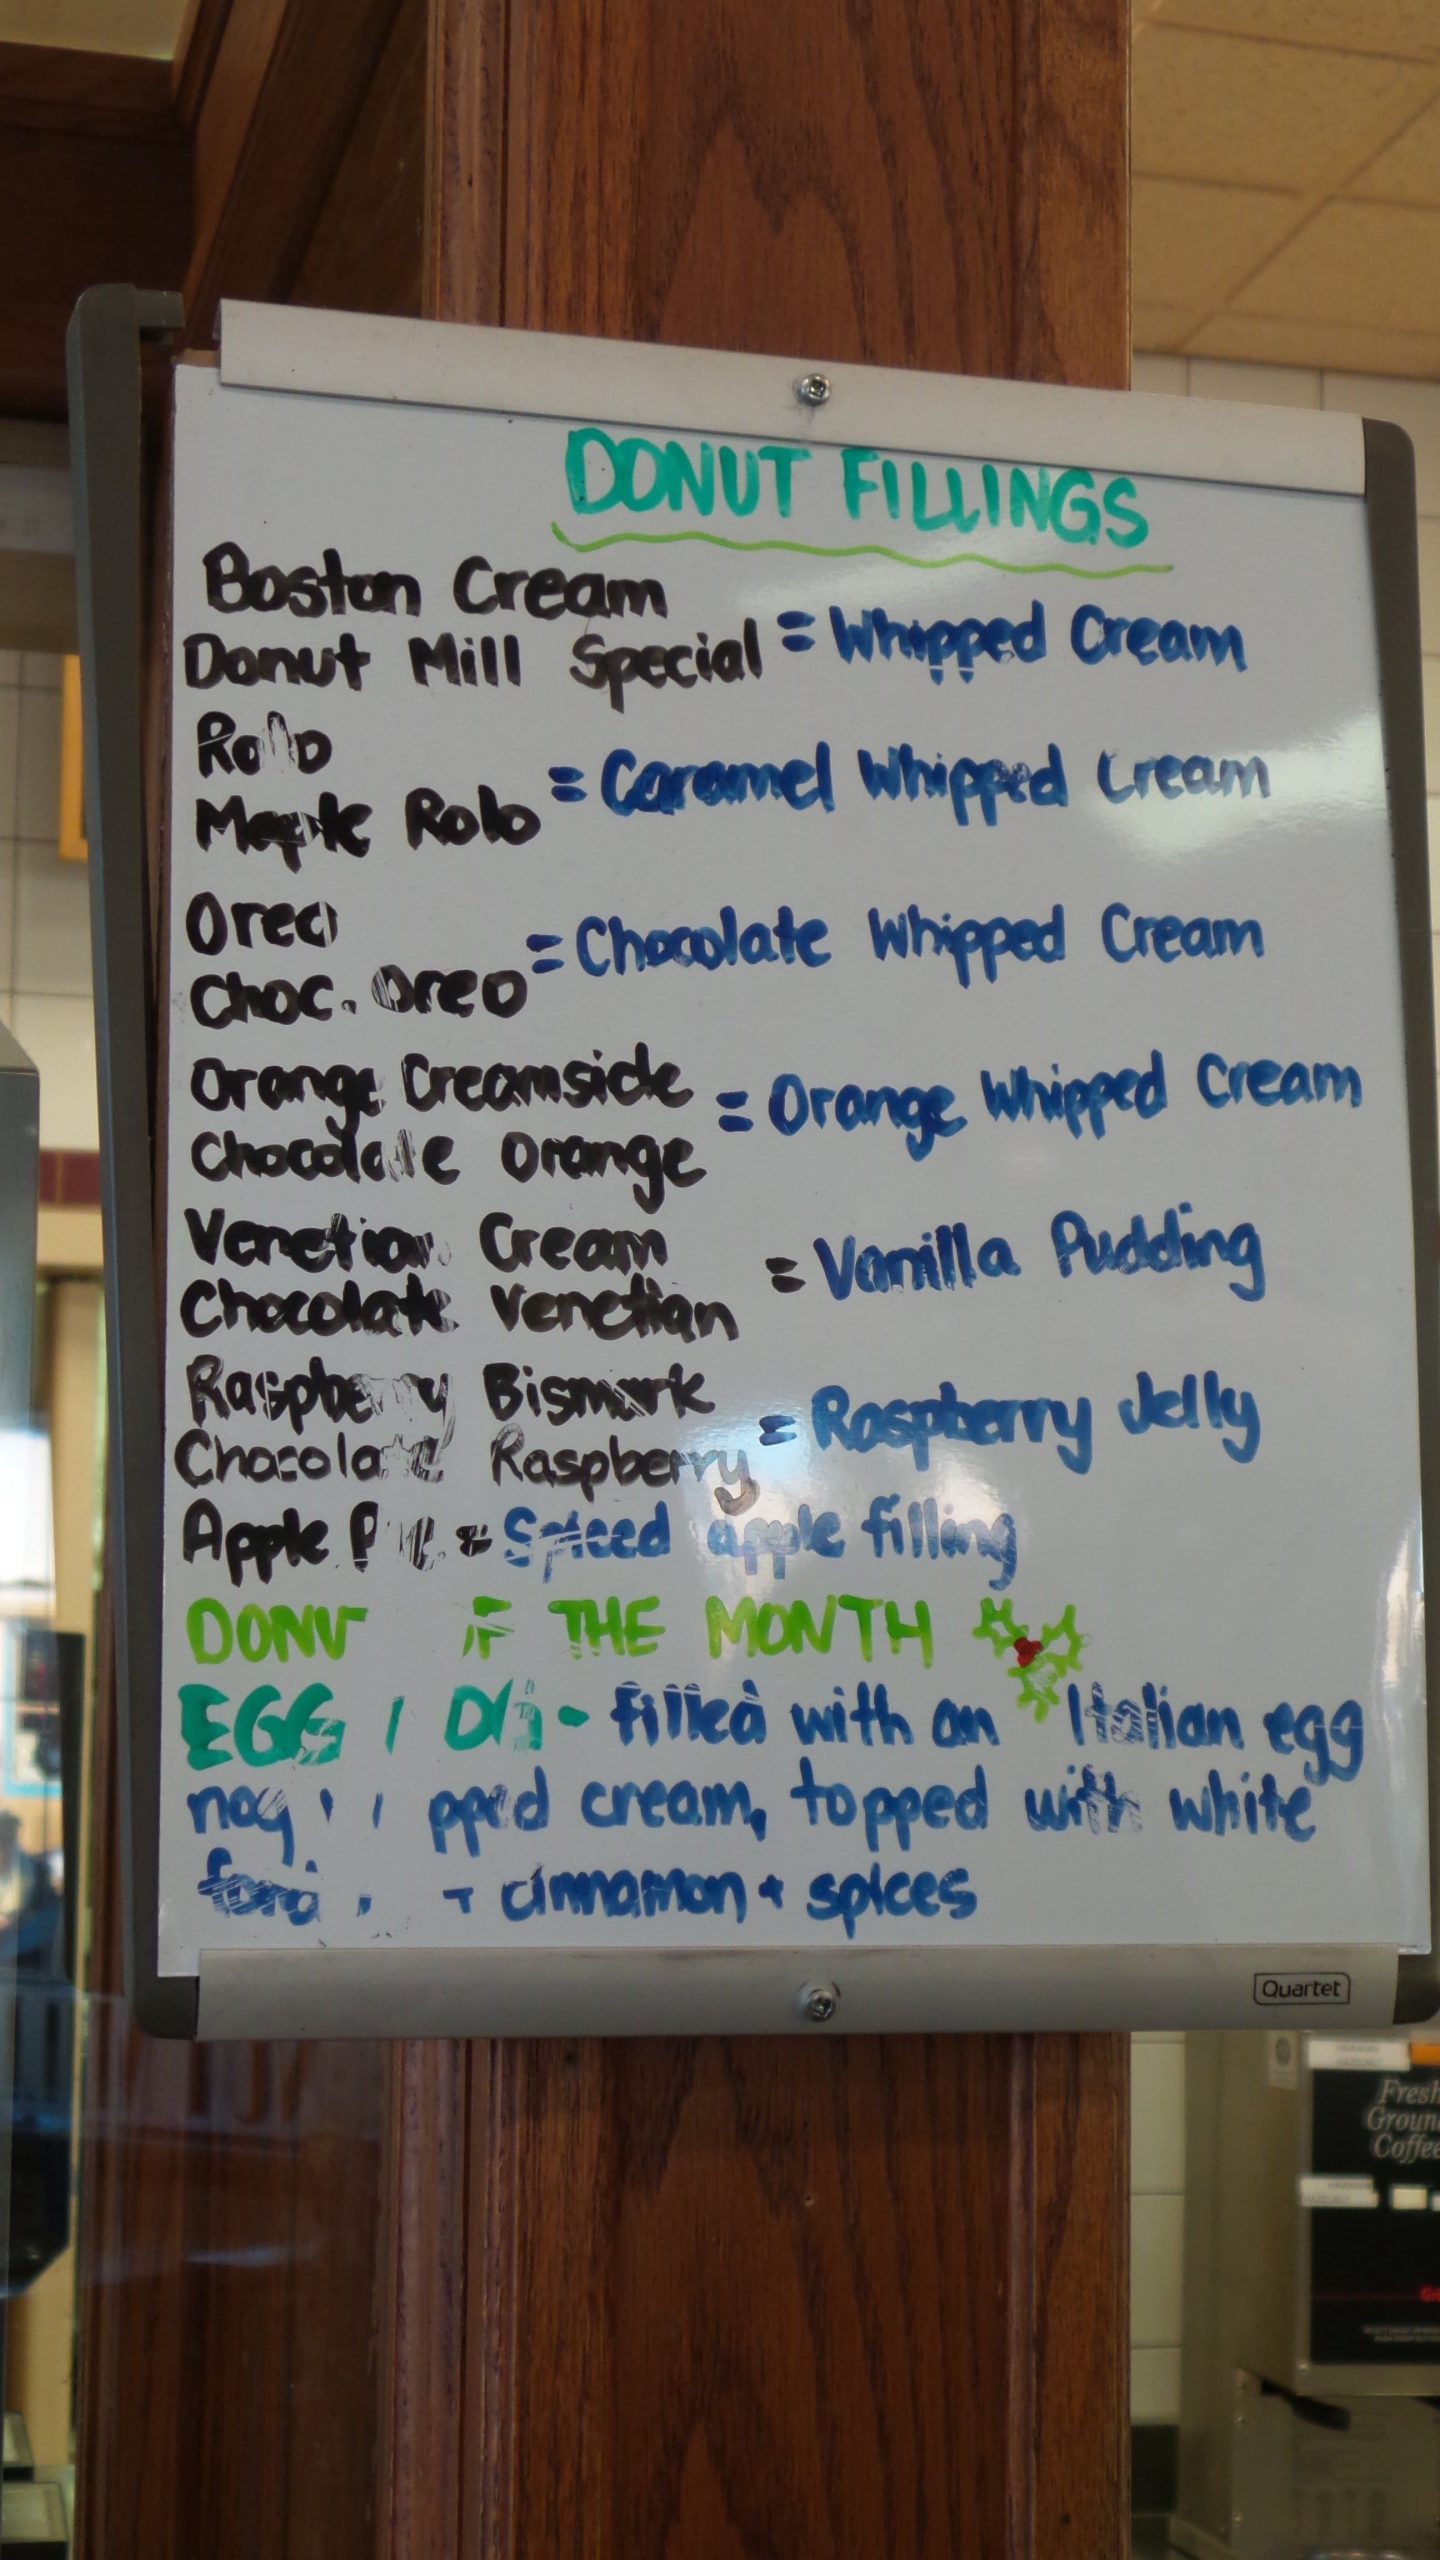 DONUT FILLINGS
Boston Cream
Donut Mill Special = Whipped Cream
Rolo
Maple Rolo = Caramel Whipped Cream
Oreo
Choc. Oreo = Chocolate Whipped Cream
Orange Creamsicle
Chocolate Orange = Orange Whipped Cream
Venetian Cream
Chocolate Venetian = Vanilla Pudding
Raspberry Bismark
Chocolate Raspberry = Raspberry Jelly
Apple = Spiced apple filling
THE MONTH
EGG - filled with an Italian egg
nog cream, topped with white
+ cinnamon + spices
Quartet
Fresh
Coffee